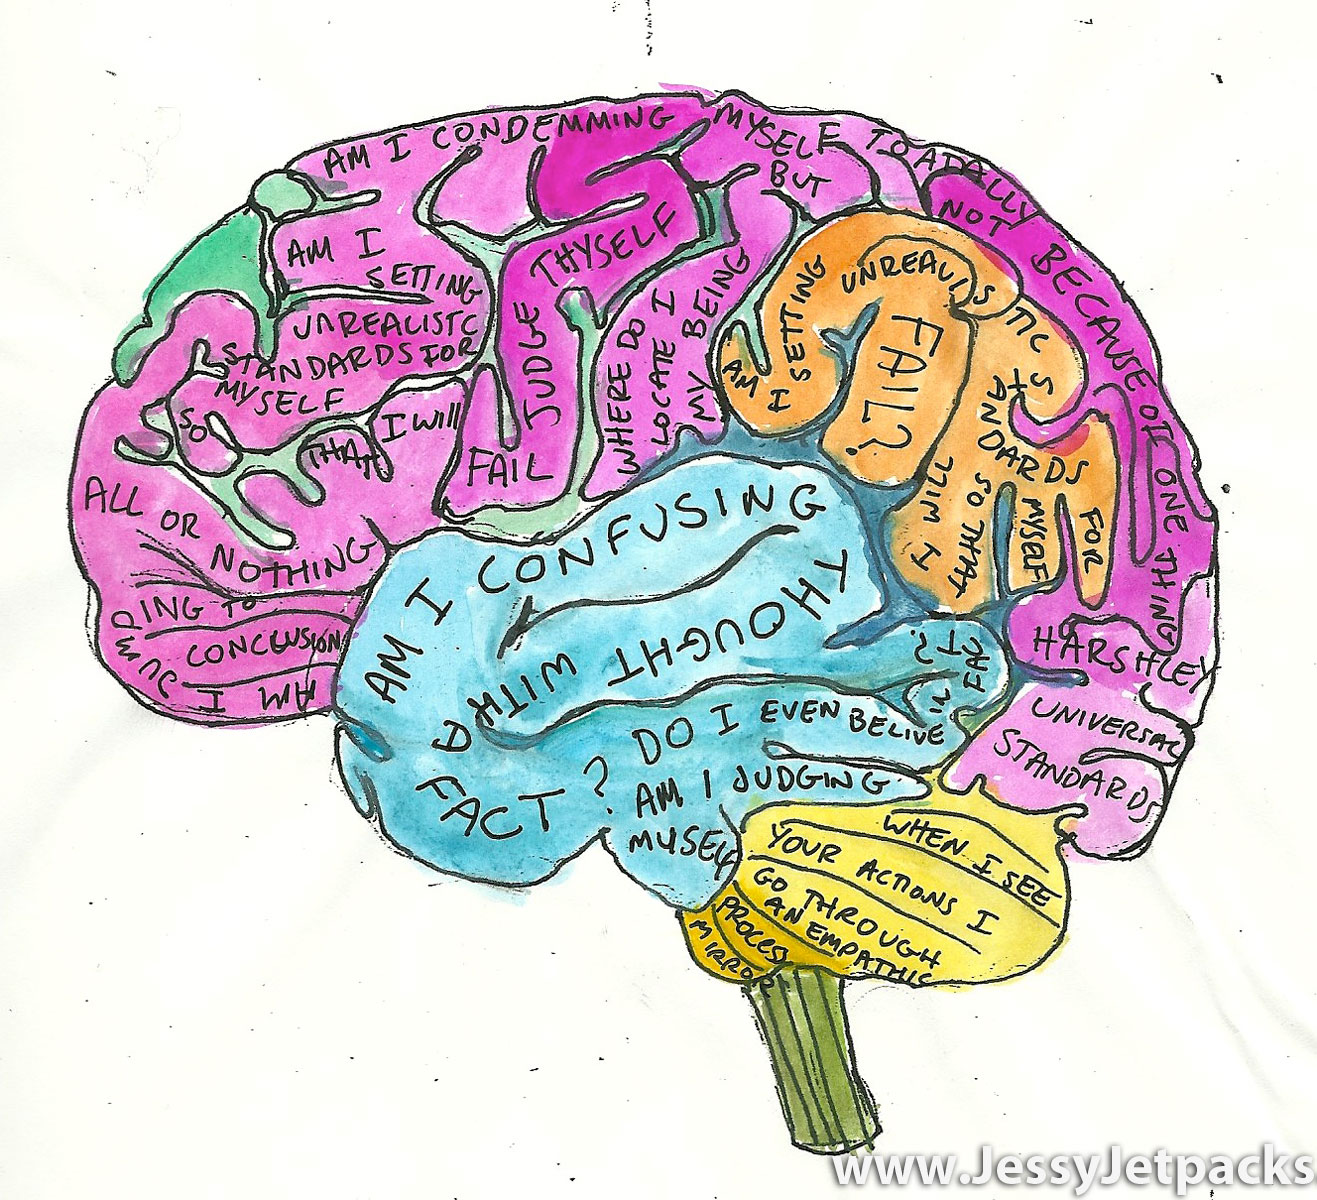 AM I CONDEMMING
MYSELF TOADALLY
BUT
NOT BECAUSE OF ONE THING
AM I
SETTING
UNREALISTC
STANDARDS FOR
MYSELF
SO
THAT
I WILL
FAIL
JUDGE THYSELF
WHERE DO I
LOCATE I
MY BEING
AM I SETTING
UNREALISTIC STANDARDS FOR
MYSELF
SO THAT
I WILL
FAIL?
ALL OR
NOTHING
JUMPING TO
CONCLUSION
AM I
HARSHLEY
UNIVERSAL
STANDARDS
AM I CONFUSING
THOUGHT WITH A
FACT?
DO I EVEN BELIVE
IN
FACT?
AM I JUDGING
MYSELF
WHEN I SEE
YOUR ACTIONS I
GO THROUGH
AN EMPATHIC
PROCESS
MIRROR
www.JessyJetpacks